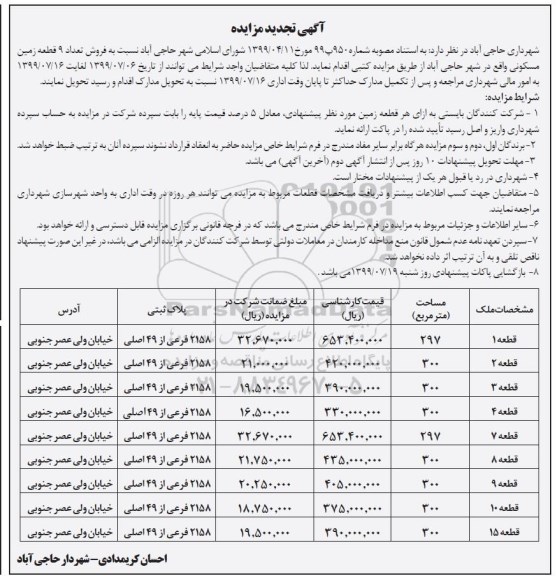 آگهی تجدید مزایده
شهرداری حاجی آباد در نظر دارد: به استناد مصوبه شماره ۹۵۰پ۹۹ مورخ ۱۳۹۹/۰۴/۱۱ شورای اسلامی شهر حاجی آباد نسبت به فروش تعداد ۹ قطعه زمین
مسکونی واقع در شهر حاجی آباد از طریق مزایده کتبی اقدام نماید. لذا کلیه متقاضیان واجد شرایط می توانند از تاریخ ۱۳۹۹/۰۷/۰۶ لغایت ۱۳۹۹/۰۷/۱۶
به امور مالی شهرداری مراجعه و پس از تکمیل مدارک حداکثر تا پایان وقت اداری ۱۳۹۹/۰۷/۱۶ نسبت به تحویل مدارک اقدام و رسید تحویل نمایند.
شرایط مزایده:
۱- شرکت کنندگان بایستی به ازای هر قطعه زمین مورد نظر پیشنهادی، معادل ۵ درصد قیمت پایه را بابت سپرده شرکت در مزایده به حساب سپرده
شهرداری واریز و اصل رسید تأیید شده را در پاکت ارائه نماید.
۲- برندگان اول، دوم و سوم مزایده هرگاه برابر سایر مفاد مندرج در فرم شرایط خاص مزایده حاضر به انعقاد قرارداد نشوند سپرده آنان به ترتیب ضبط خواهد شد.
۳- مهلت تحویل پیشنهادات ۱۰ روز پس از انتشار آگهی دوم (آخرین آگهی) می باشد.
۴- شهرداری در رد یا قبول هر یک از پیشنهادات مختار است.
۵- متقاضیان جهت کسب اطلاعات بیشتر و دریافت مشخصات قطعات مربوط به مزایده می توانند هر روزه در وقت اداری به واحد شهرسازی شهرداری
مراجعه نمایند.
۶- سایر اطلاعات و جزئیات مربوط به مزایده در فرم شرایط خاص مندرج می باشد که در فرجه قانونی برگزاری مزایده قابل دسترسی و ارائه خواهد بود.
۷- سپردن تعهدنامه عدم شمول قانون منع مداخله کارمندان در معاملات دولتی توسط شرکت کنندگان در مزایده الزامی می باشد، در غیر این صورت پیشنهاد
ناقص تلقی و به آن ترتیب اثر داده نخواهد شد.
۸- بازگشایی پاکات پیشنهادی روز شنبه ۱۳۹۹/۰۷/۱۹ می باشد.
مشخصات ملک مساحت (متر مربع) قیمت کارشناسی (ریال) مبلغ ضمانت شرکت در مزایده (ریال) پلاک ثبتی آدرس
قطعه ۱ ۲۹۷ ۶۵۳.۴۰۰.۰۰۰ ۳۲.۶۷۰.۰۰۰ ۲۱۵۸ فرعی از ۴۹ اصلی خیابان ولی عصر جنوبی
قطعه ۲ ۳۰۰ ۴۲۰.۰۰۰.۰۰۰ ۲۱.۰۰۰.۰۰۰ ۲۱۵۸ فرعی از ۴۹ اصلی خیابان ولی عصر جنوبی
قطعه ۳ ۳۰۰ ۳۹۰.۰۰۰.۰۰۰ ۱۹.۵۰۰.۰۰۰ ۲۱۵۸ فرعی از ۴۹ اصلی خیابان ولی عصر جنوبی
قطعه ۴ ۳۰۰ ۳۳۰.۰۰۰.۰۰۰ ۱۶.۵۰۰.۰۰۰ ۲۱۵۸ فرعی از ۴۹ اصلی خیابان ولی عصر جنوبی
قطعه ۷ ۲۹۷ ۶۵۳.۴۰۰.۰۰۰ ۳۲.۶۷۰.۰۰۰ ۲۱۵۸ فرعی از ۴۹ اصلی خیابان ولی عصر جنوبی
قطعه ۸ ۳۰۰ ۴۳۵.۰۰۰.۰۰۰ ۲۱.۷۵۰.۰۰۰ ۲۱۵۸ فرعی از ۴۹ اصلی خیابان ولی عصر جنوبی
قطعه ۹ ۳۰۰ ۴۰۵.۰۰۰.۰۰۰ ۲۰.۲۵۰.۰۰۰ ۲۱۵۸ فرعی از ۴۹ اصلی خیابان ولی عصر جنوبی
قطعه ۱۰ ۳۰۰ ۳۷۵.۰۰۰.۰۰۰ ۱۸.۷۵۰.۰۰۰ ۲۱۵۸ فرعی از ۴۹ اصلی خیابان ولی عصر جنوبی
قطعه ۱۵ ۳۰۰ ۳۹۰.۰۰۰.۰۰۰ ۱۹.۵۰۰.۰۰۰ ۲۱۵۸ فرعی از ۴۹ اصلی خیابان ولی عصر جنوبی
احسان کریمدادی - شهردار حاجی آباد